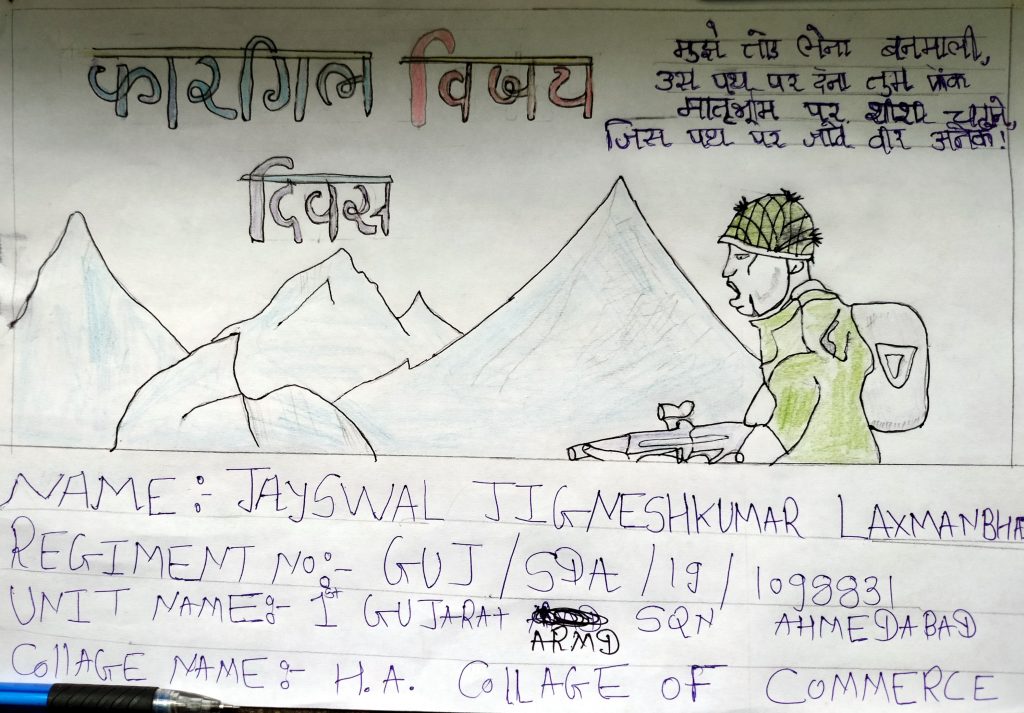 कारगिल विजय
दिवस
मुझे तोड लेना बनमाली,
उस पथ पर देना तुम फेंक
मातृभूमि पर शीश चढ़ाने,
जिस पथ पर जावे वीर अनेक!
NAME:- JAYSWAL JIGNESHKUMAR LAXMANBHA
REGIMENT NO:- GUJ/SDA/19/1098831
UNIT NAME:- 1st GUJARAT ARMD SQN AHMEDABAD
COllAGE NAME:- H.A. COllAGE OF COMMERCE